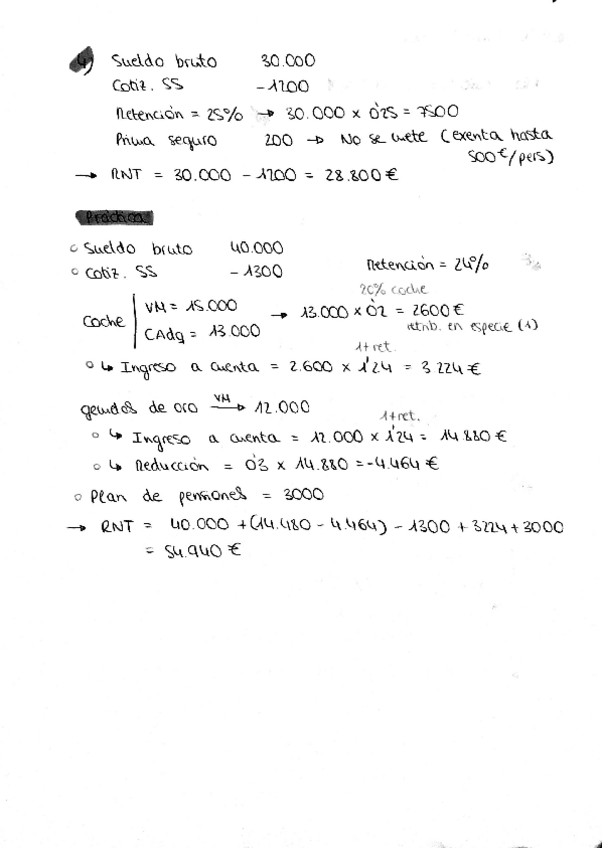 4) Sueldo bruto 30.000
Cotiz. SS -1200
Retención = 25% → 30.000 x 0'25 = 7500
Prima seguro 200 → No se mete (exenta hasta
500€/pers)
→ RNT = 30.000 - 1200 = 28.800€
Práctica
○ Sueldo bruto 40.000
○ Cotiz. SS -1300 Retención = 24%
20% coche
Coche | VM = 15.000 → 13.000 x 0'2 = 2600€
CAdq = 13.000 retrib. en especie (1)
1+ret.
○ ↳ Ingreso a cuenta = 2.600 x 1'24 = 3.224€
gemelos de oro VM→ 12.000
1+ret.
○ ↳ Ingreso a cuenta = 12.000 x 1'24 = 14.880€
○ ↳ Reducción = 0'3 x 14.880 = -4.464€
○ Plan de pensiones = 3000
→ RNT = 40.000 + (14.480 - 4.464) - 1300 + 3224 + 3000
= 54.940€